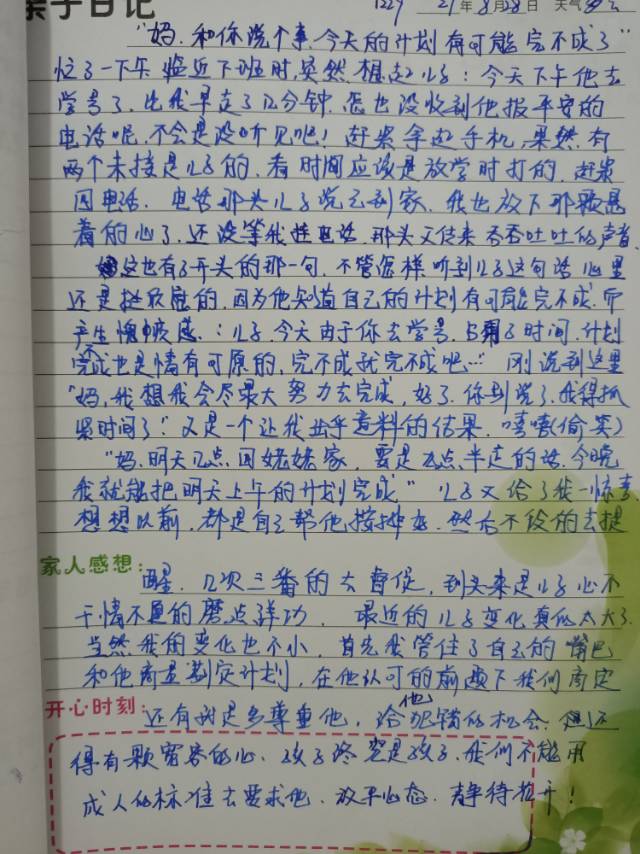 亲子日记 1229 21年8月28日 天气 多云
"妈,和你说个事,今天的计划有可能完不成了"
忙了一下午,临近下班时,突然想起儿子:今天下午他去
学号了,比我早走了几分钟,怎也没收到他报平安的
电话呢,不会是没听见吧!赶紧拿起手机,果然,有
两个未接是儿子的,看时间应该是放学时打的,赶紧
回电话,电话那头儿子说已到家,我也放下那颗悬
着的心了,还没等我挂电话,那头又传来吞吞吐吐的声音,
这也有了开头的那一句,不管怎样,听到儿子这句话心里
还是挺欣慰的,因为他知道自己的计划有可能完不成,而
产生愧疚感。:儿子,今天由于你去学号,占用了时间,计划
完不成也是情有可原的,完不成就完不成吧…"刚说到这里
"妈,我想我会尽最大努力去完成,好了,你别说了,我得抓
紧时间了!"又是一个让我出乎意料的结果,嘻嘻(偷笑)
"妈,明天几点回姥姥家,要是九点半走的话,今晚
我就能把明天上午的计划完成"儿子又给了我一惊喜,
想想以前,都是自己帮他按排, 然后不停的去提
家人感想:
醒,几次三番的去督促,到头来是儿子心不
干情不愿的磨点洋功, 最近的儿子变化真的太大了
当然我的变化也不小,首先我管住了自己的嘴巴
和他商量制定计划,在他认可的前题下我们商定
开心时刻:
还有就是多尊重他,给他犯错的机会,还
得有颗宽容的心,孩子终究是孩子,我们不能用
成人的标准去要求他,放平心态,静待花开!